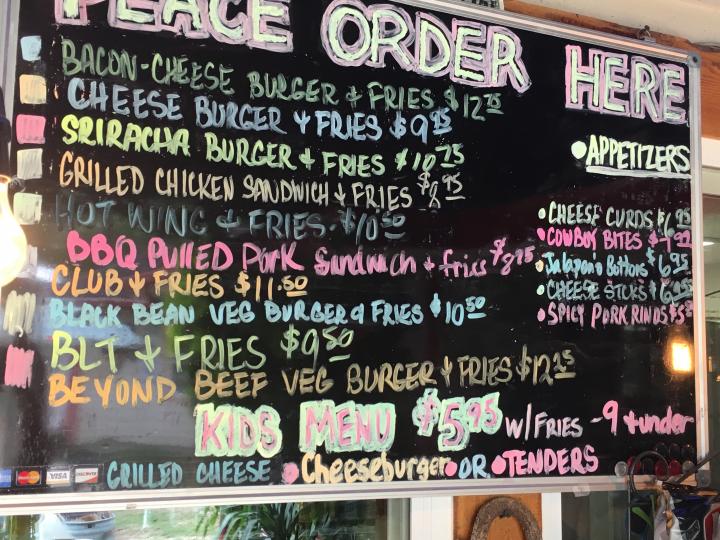 PLACE ORDER HERE
BACON-CHEESE BURGER & FRIES $12.75
CHEESE BURGER & FRIES $9.95
SRIRACHA BURGER & FRIES $10.75
GRILLED CHICKEN SANDWICH & FRIES $8.95
HOT WING & FRIES-$10.50
BBQ PULLED PORK Sandwich & fries $8.75
CLUB & FRIES $11.50
BLACK BEAN VEG BURGER & FRIES $10.50
BLT & FRIES $9.50
BEYOND BEEF VEG BURGER & FRIES $12.25
APPETIZERS
CHEESE CURDS $6.95
COWBOY BITES
Jalapeno Bottons $6.95
CHEESE STICKS
SPICY PORK RINDS
KIDS MENU $5.95 W/FRIES - 9 & under
GRILLED CHEESE Cheeseburger OR TENDERS
MasterCard VISA DISCOVER